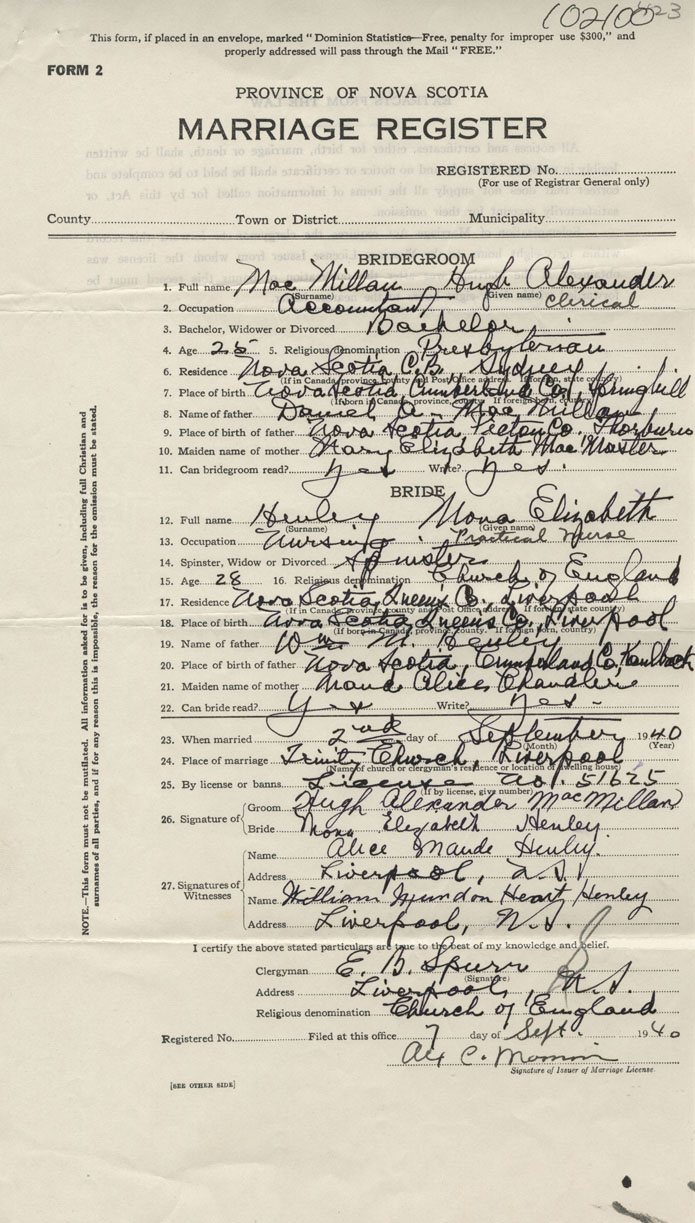 102100 423
This form, if placed in an envelope, marked "Dominion Statistics—Free, penalty for improper use $300," and
properly addressed will pass through the Mail "FREE."
FORM 2
PROVINCE OF NOVA SCOTIA
MARRIAGE REGISTER
REGISTERED No.
(For use of Registrar General only)
County Town or District Municipality
BRIDEGROOM
1. Full name Mac Millan Hugh Alexander
(Surname) (Given name)
2. Occupation Accountant clerical
3. Bachelor, Widower or Divorced Bachelor
4. Age 25 5. Religious denomination Presbyterian
6. Residence Nova Scotia, C.B. Sydney
(If in Canada, province, county and Post Office address. If foreign, state county)
7. Place of birth Nova Scotia, Cumberland Co., Springhill
(If born in Canada, province, county. If foreign born, country)
8. Name of father Daniel A. Mac Millan
9. Place of birth of father Nova Scotia Pictou Co. Thorburn
10. Maiden name of mother Mary Elizabeth MacMaster
11. Can bridegroom read? Yes Write? Yes.
BRIDE
12. Full name Henley Mona Elizabeth
(Surname) (Given name)
13. Occupation Nursing. Practical Nurse
14. Spinster, Widow or Divorced Spinster
15. Age 28 16. Religious denomination Church of England
17. Residence Nova Scotia, Queens Co., Liverpool
(If in Canada, province, county and Post Office address. If foreign state county)
18. Place of birth Nova Scotia, Queens Co., Liverpool
(If born in Canada, province, county. If foreign born, country)
19. Name of father Wm. M. Henley
20. Place of birth of father Nova Scotia, Cumberland Co.,
21. Maiden name of mother Maud Alice Chandler
22. Can bride read? Yes Write? Yes.
23. When married 2nd day of September 1940
(Month) (Year)
24. Place of marriage Trinity Church, Liverpool
(Name of church or clergyman's residence or location of dwelling house)
25. By license or banns License no. 51625
(If by license, give number)
26. Signature of Groom Hugh Alexander MacMillan
Bride Mona Elizabeth Henley.
27. Signatures of Witnesses
Name Alice Maude Henley.
Address Liverpool, N.S.
Name William Heart Henley
Address Liverpool, N.S.
I certify the above stated particulars are true to the best of my knowledge and belief.
Clergyman E. B. Spurr
(Signature)
Address Liverpool, N.S.
Religious denomination Church of England
Registered No. Filed at this office 7 day of Sept. 1940
Signature of Issuer of Marriage License
[SEE OTHER SIDE]
NOTE.—This form must not be mutilated. All information asked for is to be given, including full Christian and
surnames of all parties, and if for any reason this is impossible, the reason for the omission must be stated.